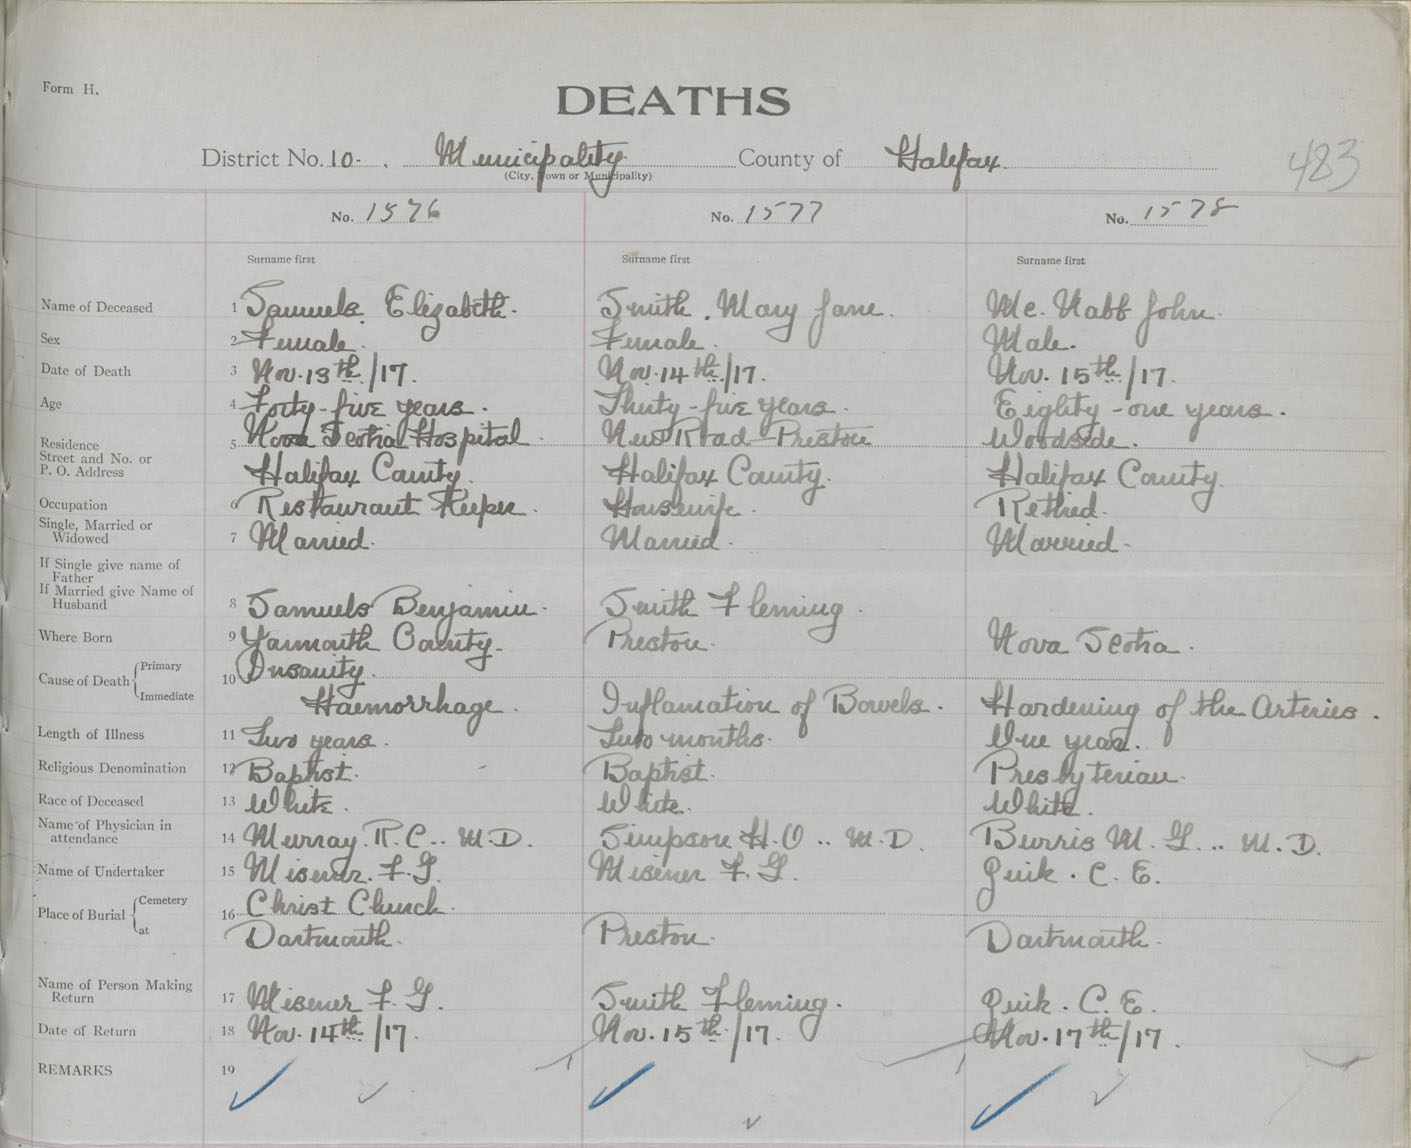 Form H.
DEATHS
District No. 10- . Municipality County of Halifax
(City, Town or Municipality)
483
No. 1576 No. 1577 No. 1578
Surname first Surname first Surname first
Name of Deceased 1 Samuels Elizabeth. Smith. Mary Jane. Mc. Nabb John.
Sex 2 Female. Female. Male.
Date of Death 3 Nov. 13th/17. Nov. 14th/17. Nov. 15th/17.
Age 4 Forty-five years. Thirty-five years. Eighty-one years.
Residence 5 Nova Scotia Hospital. New Road Preston Woodside.
Street and No. or
P. O. Address Halifax County. Halifax County. Halifax County.
Occupation 6 Restaurant Keeper. Housewife. Retired.
Single, Married or
Widowed 7 Married. Married. Married.
If Single give name of
Father
If Married give Name of
Husband 8 Samuels Benjamin. Smith Fleming.
Where Born 9 Yarmouth County. Preston. Nova Scotia.
Cause of Death Primary 10 Insanity.
Immediate Haemorrhage. Inflamation of Bowels. Hardening of the Arteries.
Length of Illness 11 Two years. Two months. One year.
Religious Denomination 12 Baptist. Baptist. Presbyterian.
Race of Deceased 13 White. White. White.
Name of Physician in
attendance 14 Murray. R. C.. M. D. Simpson H. O.. M. D. Burris M. G... M. D.
Name of Undertaker 15 Misener. F. G. Misener F. G. Quik. C. E.
Place of Burial Cemetery 16 Christ Church.
at Dartmouth. Preston. Dartmouth.
Name of Person Making
Return 17 Misener F. G. Smith Fleming. Quik. C. E.
Date of Return 18 Nov. 14th/17. Nov. 15th/17. Nov. 17th/17.
REMARKS 19